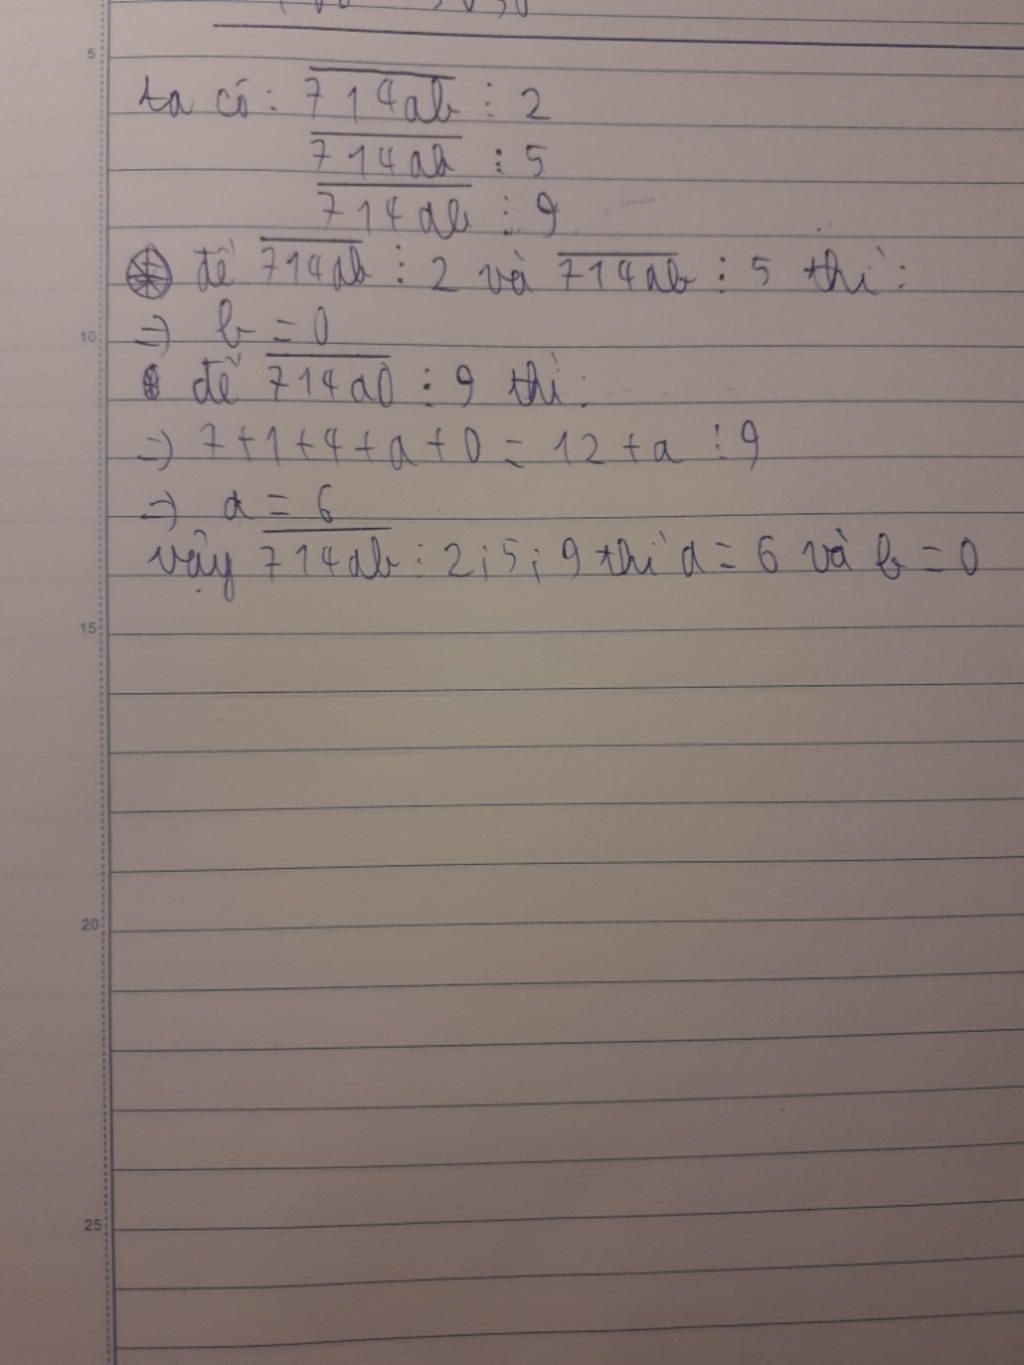 5
ta có: 714ab ⋮ 2
714ab ⋮ 5
714ab ⋮ 9
để 714ab ⋮ 2 và 714ab ⋮ 5 thì:
10
=> b = 0
để 714a0 ⋮ 9 thì:
=> 7+1+4+a+0 = 12+a ⋮ 9
=> a = 6
vậy 714ab ⋮ 2;5;9 thì a = 6 và b = 0
15
20
25